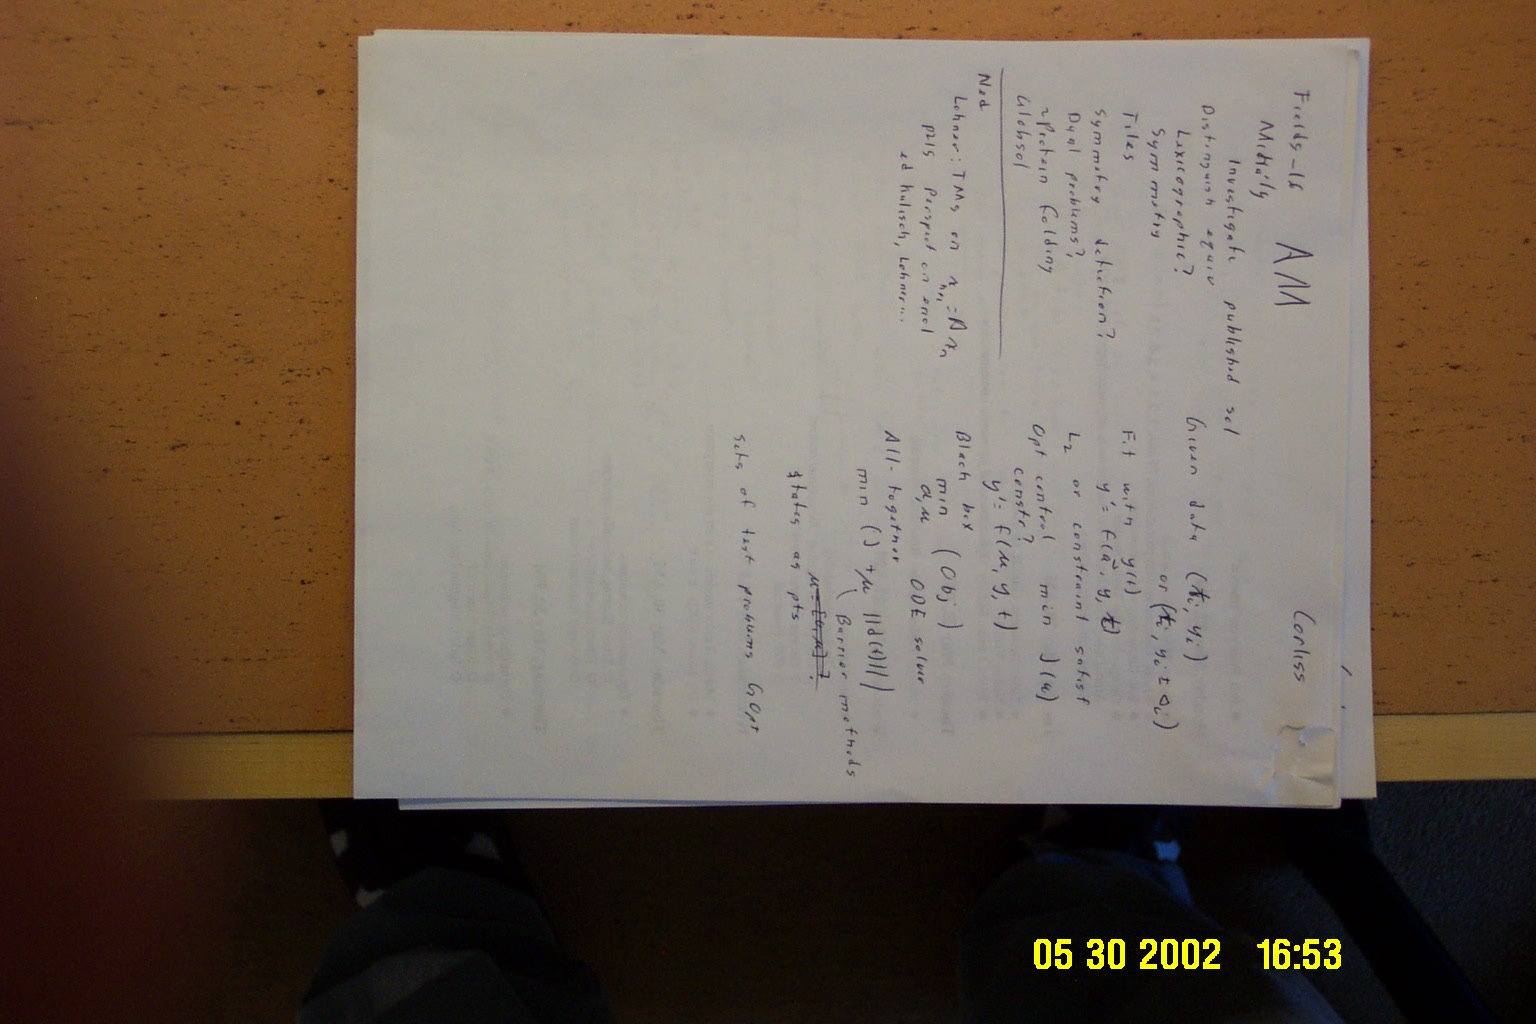 Fields-16 AM Corliss
Mihály
Investigate published sol
Distinguish equiv
Lexicographic?
Symmetry
Tiles
Symmetry detection?
Dual problems?
~Protein folding
Globsol
Ned
Lohner: TMs on x_{n+1} = A x_n
perspect on encl
ed Kulisch, Lohner...
Given data (t_i, y_i)
or (t_i, y_i ± Δ_i)
Fit with y(t)
y' = f(a, y, t)
L_2 or constraint satisf
Opt control min J(u)
constr?
y' = f(u, y, t)
Black box
min (Obj)
a,u ODE solver
All-together
min () + μ ||d(t)||
Barrier methods
States as pts
Sets of test problems GOpt
05 30 2002 16:53